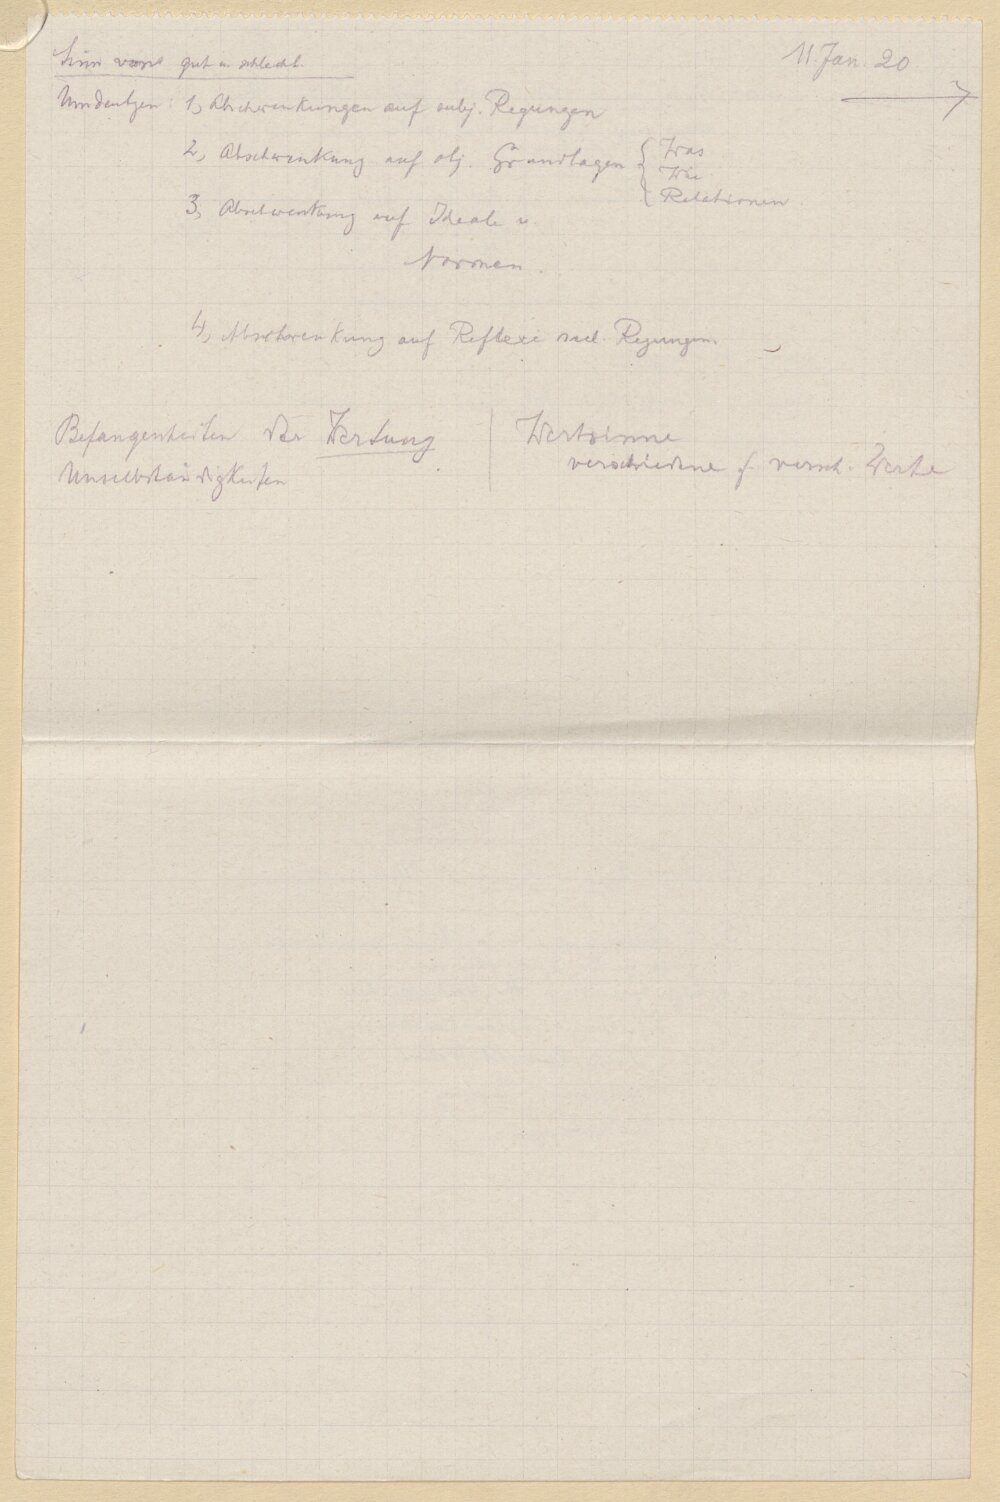 Sinn von gut u. schlecht.
11. Jan. 20
Umdeutgen: 1, Abschwenkungen auf subj. Regungen
2, Abschwenkung auf obj. Grundlagen { Was
Wie
Relationen.
3, Abschwenkung auf Ideale u.
Normen.
4, Abschwenkung auf Reflexe Regungen.
Befangenheiten der Wertung
Unselbständigkeiten
Wertsinne
verschiedene f. versch. Werte